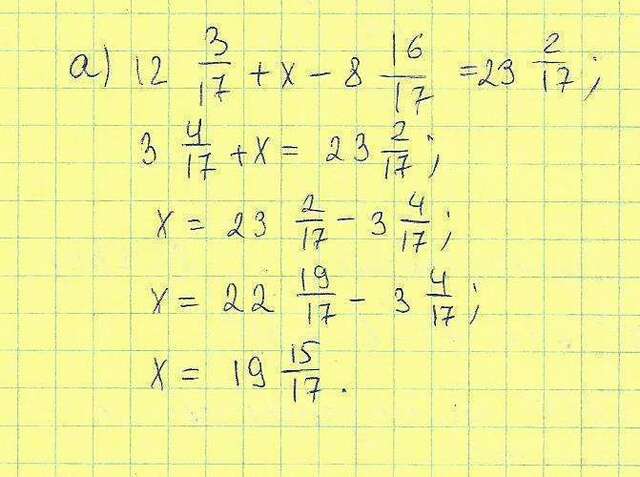 а) 12 3/17 + x - 8 16/17 = 23 2/17;
3 4/17 + x = 23 2/17;
x = 23 2/17 - 3 4/17;
x = 22 19/17 - 3 4/17;
x = 19 15/17.